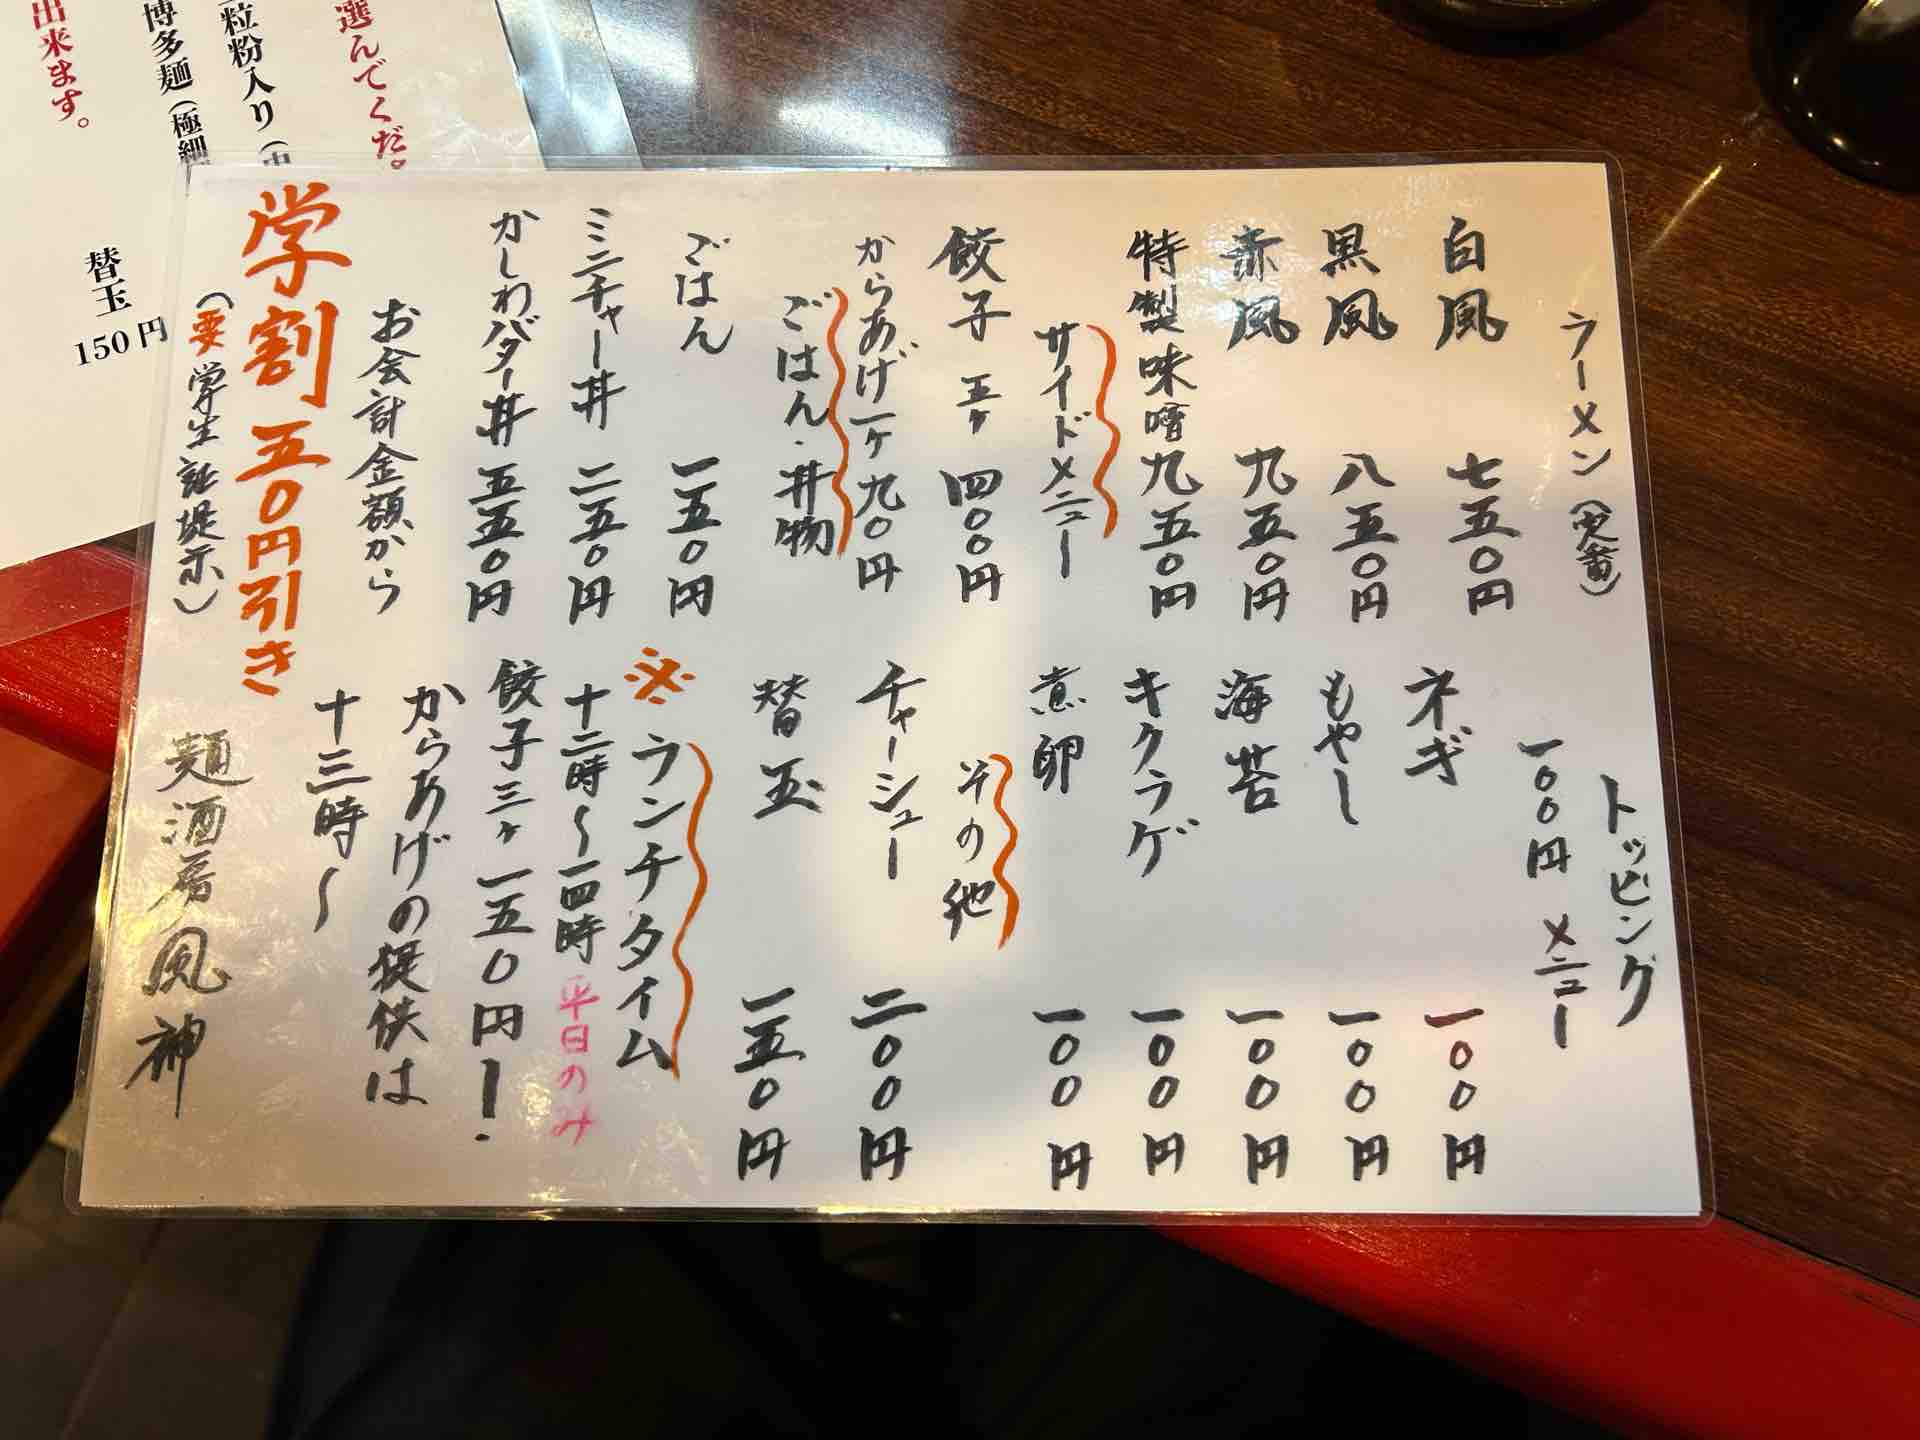 ラーメン（定番）
白風 七五〇円
黒風 八五〇円
赤風 九五〇円
特製味噌 九五〇円
サイドメニュー
餃子 五ヶ 四〇〇円
からあげ一ヶ九〇円
ごはん・丼物
ごはん 一五〇円
ミニチャー丼 二五〇円
かしわバター丼 五五〇円
お会計金額から
学割五〇円引き
（要学生証提示）
トッピング
一〇〇円メニュー
ネギ 一〇〇円
もやし 一〇〇円
海苔 一〇〇円
キクラゲ 一〇〇円
煮卵 一〇〇円
その他
チャーシュー 二〇〇円
替玉 一五〇円
※ランチタイム
十二時〜一四時 平日のみ
餃子三ヶ一五〇円!
からあげの提供は
十三時〜
麺酒房 風神
選んでくだ。
粒粉入り（中
博多麺（極細
出来ます。
替玉
150円